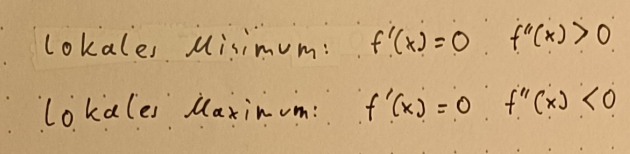 Lokales Minimum: f'(x) = 0 f''(x) > 0
Lokales Maximum: f'(x) = 0 f''(x) < 0